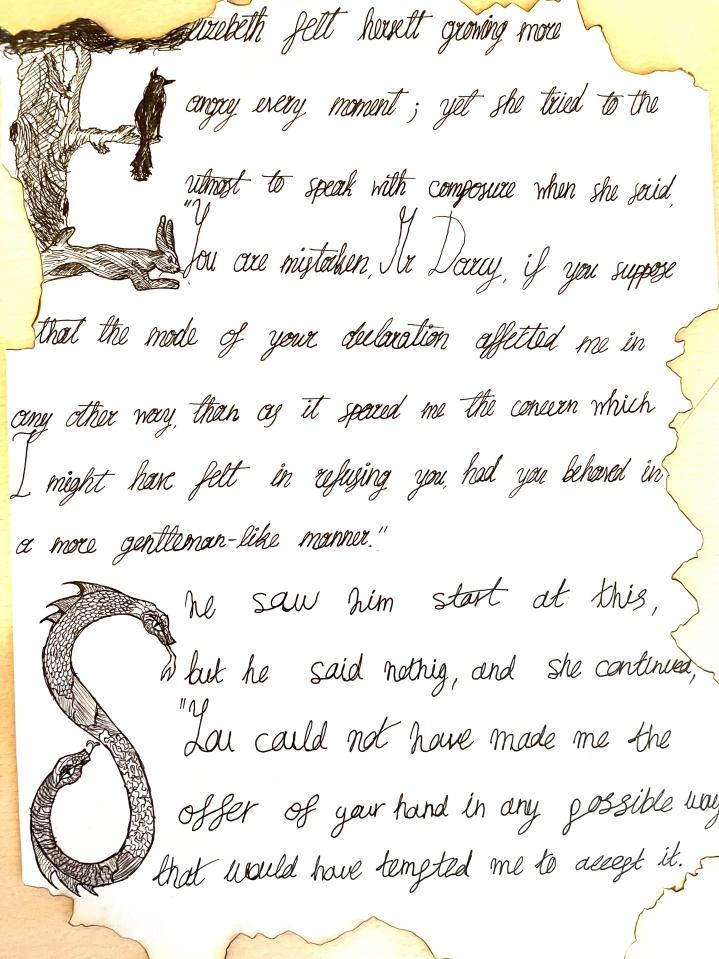 Elizebeth felt herself growing more
angry every moment; yet she tried to the
utmost to speak with composure when she said,
"You are mistaken, Mr Darcy, if you suppose
that the mode of your declaration affected me in
any other way, than as it spared me the concern which
I might have felt in refusing you, had you behaved in
a more gentleman-like manner."
She saw him start at this,
but he said nothig, and she continued,
"You could not have made me the
offer of your hand in any possible way
that would have tempted me to accept it.